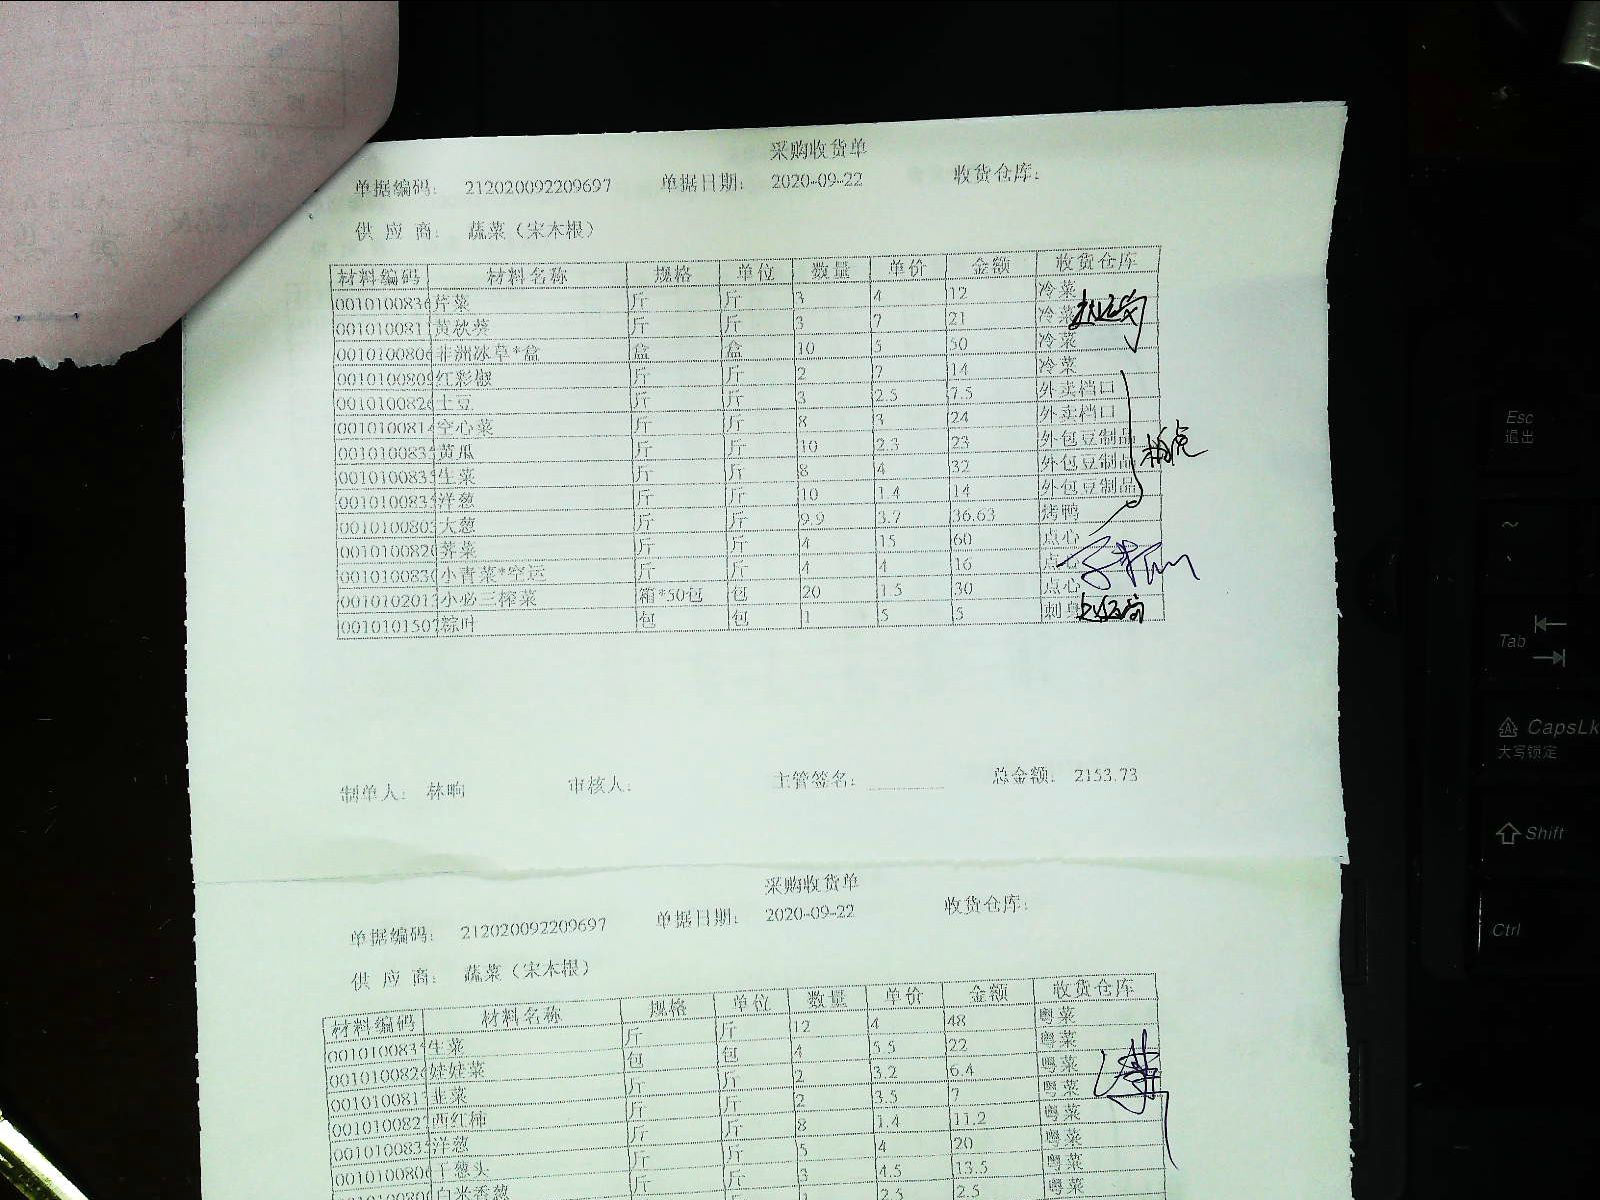 采购收货单
单据编码： 212020092209697 单据日期： 2020-09-22 收货仓库：
供 应 商： 蔬菜（宋本根）
材料编码 材料名称 规格 单位 数量 单价 金额 收货仓库
001010083 芹菜 斤 斤 3 4 12 冷菜
001010081 黄秋葵 斤 斤 3 7 21 冷菜
001010080 非洲冰草*盒 盒 盒 10 5 50 冷菜
001010080 红彩椒 斤 斤 2 7 14 冷菜
001010082 土豆 斤 斤 3 2.5 7.5 外卖档口
001010081 空心菜 斤 斤 8 3 24 外卖档口
001010083 黄瓜 斤 斤 10 2.3 23 外包豆制品
001010083 生菜 斤 斤 8 4 32 外包豆制品
001010083 洋葱 斤 斤 10 1.4 14 外包豆制品
001010080 大葱 斤 斤 9.9 3.7 36.63 烤鸭
001010082 荠菜 斤 斤 4 15 60 点心
001010083 小青菜*空运 斤 斤 4 4 16 点心
001010201 小必三榨菜 箱*50包 包 20 1.5 30 点心
001010150 粽叶 包 包 1 5 5 刺身
制单人： 林响 审核人： 主管签名： 总金额： 2153.73
采购收货单
单据编码： 212020092209697 单据日期： 2020-09-22 收货仓库：
供 应 商： 蔬菜（宋本根）
材料编码 材料名称 规格 单位 数量 单价 金额 收货仓库
001010083 生菜 斤 斤 12 4 48 粤菜
001010082 娃娃菜 包 包 4 5.5 22 粤菜
001010081 韭菜 斤 斤 2 3.2 6.4 粤菜
001010082 西红柿 斤 斤 2 3.5 7 粤菜
001010083 洋葱 斤 斤 8 1.4 11.2 粤菜
001010080 干葱头 斤 斤 5 4 20 粤菜
白米香葱 斤 斤 3 4.5 13.5 粤菜
2.5 2.5 粤菜
Esc
退出
~
Tab
CapsLk
大写锁定
Shift
Ctrl